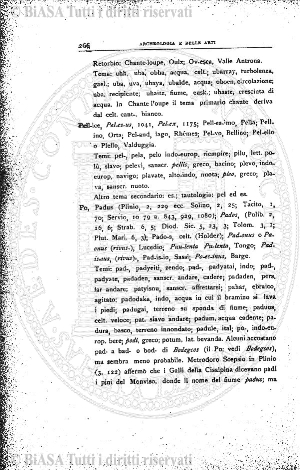 © BiASA Tutti i diritti riservati
266 ARCHEOLOGIA E BELLE ARTI
Retorbio; Chante-loupe, Oulx; Ov-esca, Valle Antrona.
Tema: ubh, uba, obba, acqua, celt.; ubarray, turbolenza,
gael.; uba, uva, ubaya, ubalde, acqua; oboen, circolazione;
uba, recipiente; ubaite, fiume, eask., ubaste, cresciuta di
acqua. In Chante l'oupe il tema primario chante deriva
dal celt. cant., bianco.
Pell-ice, Pel-es-us, 1041, Pel-ex, 1175; Pell-es-imo, Pella; Pell-
ino, Orta; Pel-aud, lago, Rhêmes; Pel-vo, Bellino; Pel-ello
o Plello, Valduggia.
Temi: pel-, pela, pelo indo-europ. riempire; pilu, lett. po-
lù, slavo; pelevi, sanscr. pellis, greco, bacino; plevo, indo-
europ. navigo; plavate, alto-indo, nuota; pleo, greco; pla-
va, sanscr. nuoto.
Altro tema secondario: es.; tautologia: pel ed es.
Po, Padus (Plinio, 2, 229 ecc. Solino, 2, 25; Tacito, 1,
70; Servio, 10 79 e 843, 929, 1080); Padus, (Polib. 2,
16, 6; Strab. 6, 5; Diod. Sic. 5, 23, 3; Tolom. 3, 1;
Plut. Mari. 6, 3); Pado-s, celt. (Holder); Pad-anus o Pe-
onus (rivus-), Lucedio; Pau-lento Pa-lenta, Tongo; Pad-
is-sus, (rivus), Pad-is-io, Sassè; Po-es-imus, Barge.
Temi: pad-, padyeiti, zendo; pad-, padyatai, indo, pad-,
padyate, padaden, sanscr. andare, cadere; padaden, pera,
lar andare; patyisna, sanscr. affrettarsi; pahar, ebraico,
agitato; padodaka, indo, acqua in cui il bramino si lava
i piedi; padugai, terreno su sponda di fiume; paduos,
celt. veloce; pat. slavo andare; padum, acqua cadente; pa-
dura, basco, terreno innondato; padule, ital; po-, indo-eu-
rop. bere; podi, greco; potum, lat. bevanda. Alcuni accostano
pad- a bad- o bod- di Bodegcos (il Po: vedi Bodegsos),
ma sembra meno probabile. Metrodoro Scepsio in Plinio
(3. 122) affermò che i Galli della Cisalpina dicevano padi
i pini del Monviso, donde il nome del fiume padus; ma
© BiASA Tutti i diritti riservati